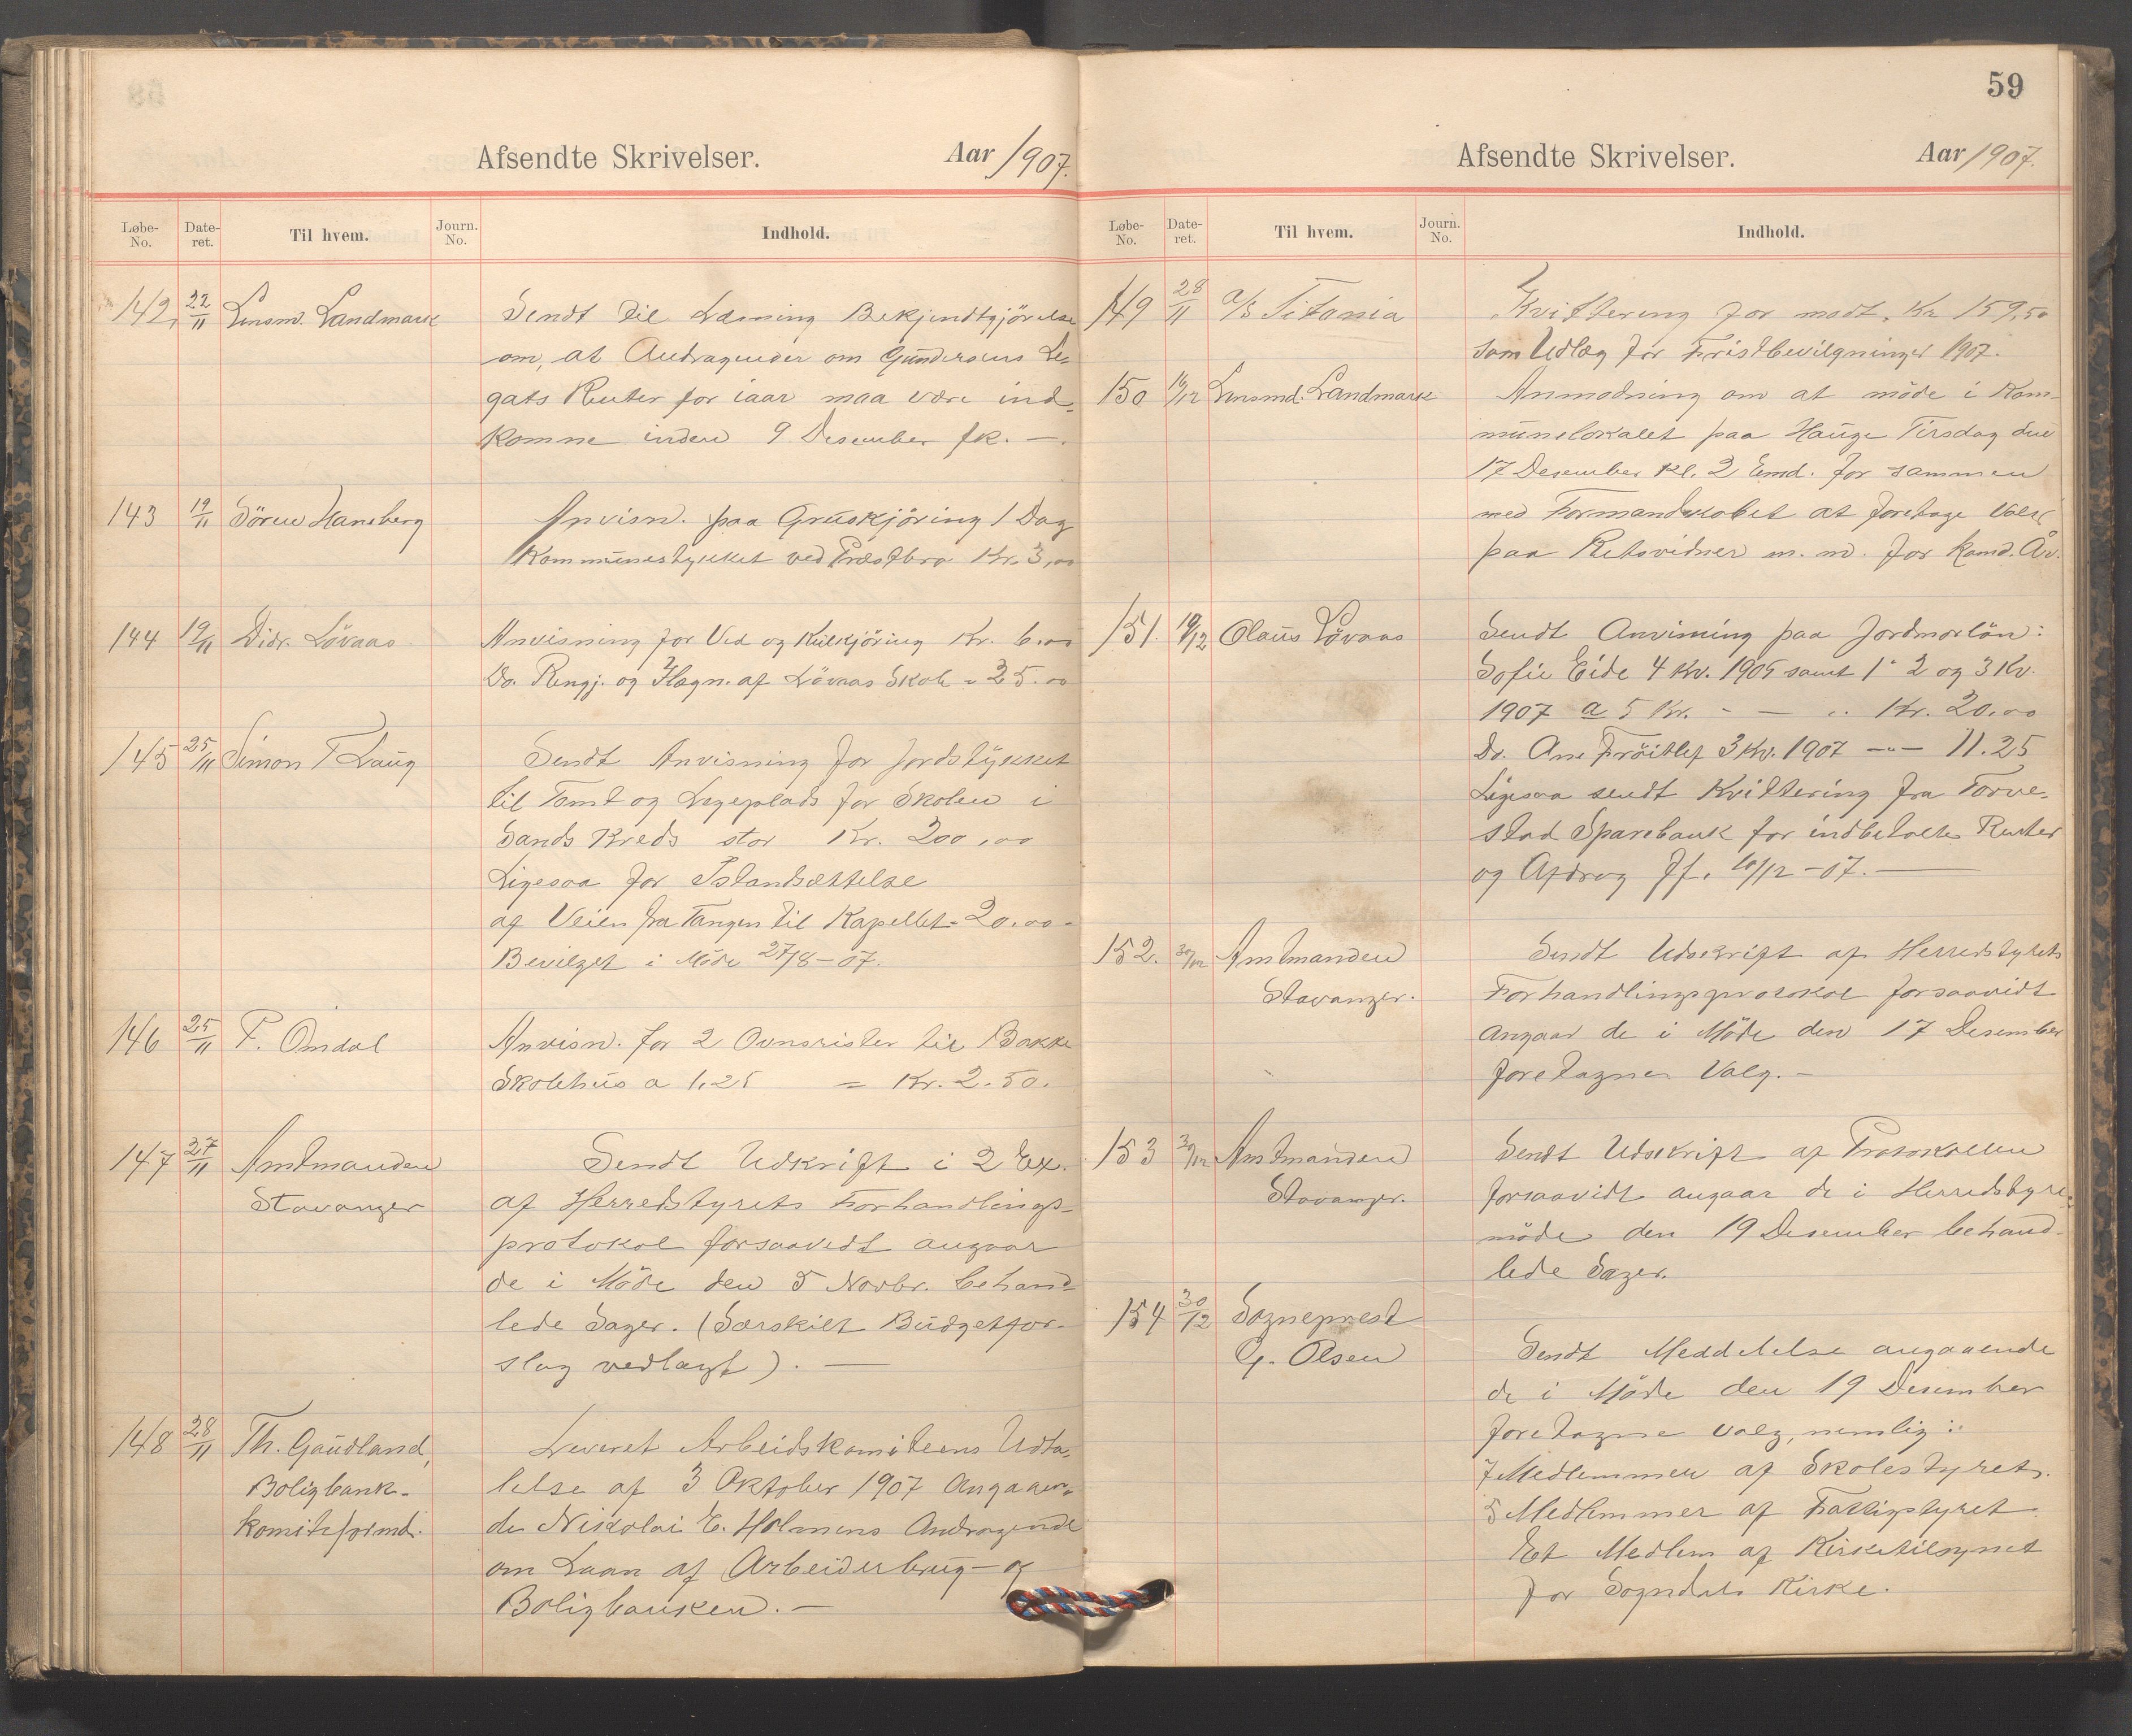 Afsendte Skrivelser. Aar 1907.
Løbe-No. Date-ret. Til hvem. Journ. No. Indhold.
142, 22/11 Lensm. Landmark Sendt til Læsning Bekjendtgjörelse
om, at Andragender om Gundersens Le-
gats Renter for iaar maa være ind-
komne inden 9 Desember fk. —
143 19/11 Sören Haneberg Anvisn. paa Gruskjöring 1 Dag
Kommunestykket ved Præstbro Kr. 3,00
144 19/11 Didr. Lövaas Anvisning for Ved og Kulkjöring Kr. 6.00
Do. Rengj. og Ilægn. af Lövaas Skole " 25.00
145 25/11 Simon T Haug Sendt Anvisning for Jordstykket
til Tomt og Legeplads for Skolen i
Sands Kreds stor Kr. 200,00
Ligesaa for Istandsættelse
af Veien fra Tangen til Kapellet - 20.00 -
Bevilget i Möde 27/8-07.
146 25/11 P. Omdal Anvisn. for 2 Ovnsrister til Bakke
Skolehus a 1,25 = Kr. 2.50.
147 27/11 Amtmanden Sendt Udskrift i 2 Ex.
Stavanger af Herredstyrets Forhandlings-
protokol forsaavidt angaar
de i Möde den 5 Novbr. behand-
lede Sager. (Særskilt Budgetfor-
slag vedlagt). —
148 28/11 Th. Gaudland, Leveret Arbeidskomiteens Udta-
Boligbank- lelse af 3 Oktober 1907 Angaaen-
komiteformd. de Nikolai E. Holmens Andragende
om Laan af Arbeiderbrug- og
Boligbanken. —
59
Afsendte Skrivelser. Aar 1907.
Løbe-No. Date-ret. Til hvem. Journ. No. Indhold.
149 28/11 a/s Titania Kvittering for modt. Kr 159,50
som Udlæg for Fristbevilgninger 1907.
150 14/12 Lensmd. Landmark Anmodning om at möde i Kom-
munelokalet paa Hauge Tirsdag den
17 Desember Kl. 2 Emd. for sammen
med Formandskabet at foretage Valg
paa Retsvidner m. m. for komd. År.
151. 19/12 Olaus Lövaas Sendt Anvisning paa Jordmorlön:
Sofie Eide 4 Kv. 1906 samt 1' 2 og 3 Kv.
1907 a 5 Kr. - — " Kr. 20.00
Do. Ane Fröitlef 3 Kv. 1907 -"- 11.25
Ligesaa sendt Kvittering fra Torve-
stad Sparebank for indbetalte Renter
og Afdrag Jf. 10/12-07. —
152. 30/12 Amtmanden Sendt Udskrift af Herredstyrets
Stavanger. Forhandlingsprotokol forsaavidt
angaar de i Möde den 17 Desember
foretagne Valg. —
153 30/12 Amtmanden Sendt Udskrift af Protokollen
Stavanger. forsaavidt angaar de i Herredstyre-
möde den 19 Desember behand-
lede Sager.
154 30/12 Sogneprest
G. Olsen Sendt Meddelelse angaaende
de i Möde den 19 Desember
foretagne valg, nemlig:
7 Medlemmer af Skolestyret.
5 Medlemmer af Fattigstyret
Et Medlem af Kirketilsynet
for Sogndals Kirke.